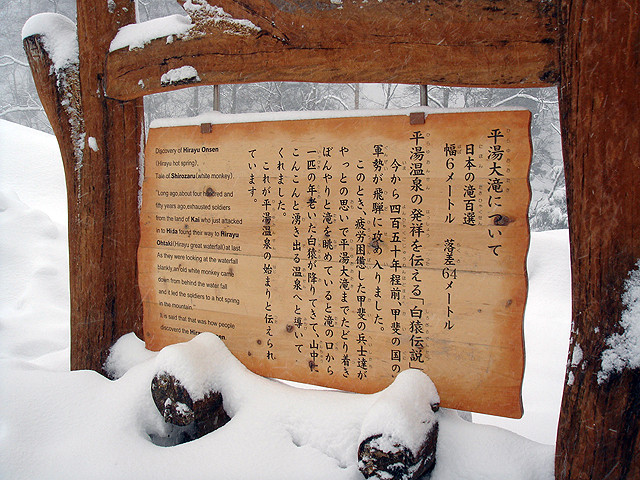 平湯大滝について
日本の滝百選
幅6メートル 落差64メートル
平湯温泉の発祥を伝える「白猿伝説」
今から四百五十年程前、甲斐の国の
軍勢が飛騨に攻め入りました。
このとき、疲労困憊した甲斐の兵士達が
やっとの思いで平湯大滝までたどり着き
ぼんやりと滝を眺めていると滝の口から
一匹の年老いた白猿が降りてきて、山中に
こんこんと湧き出る温泉へと導いて
くれました。
これが平湯温泉の始まりと伝えられ
ています。
Discovery of Hirayu Onsen
(Hirayu hot spring),
Tale of Shirozaru(white monkey).
"Long ago,about four hundred and
fifty years ago,exhausted soldiers
from the land of Kai who just attacked
in to Hida found their way to Hirayu
Ohtaki(Hirayu great waterfall)at last.
As they were looking at the waterfall
blankly,an old white monkey came
down from behind the water fall
and it led the soldiers to a hot spring
in the mountain."
It is said that that was how people
discoverd the Hirayu